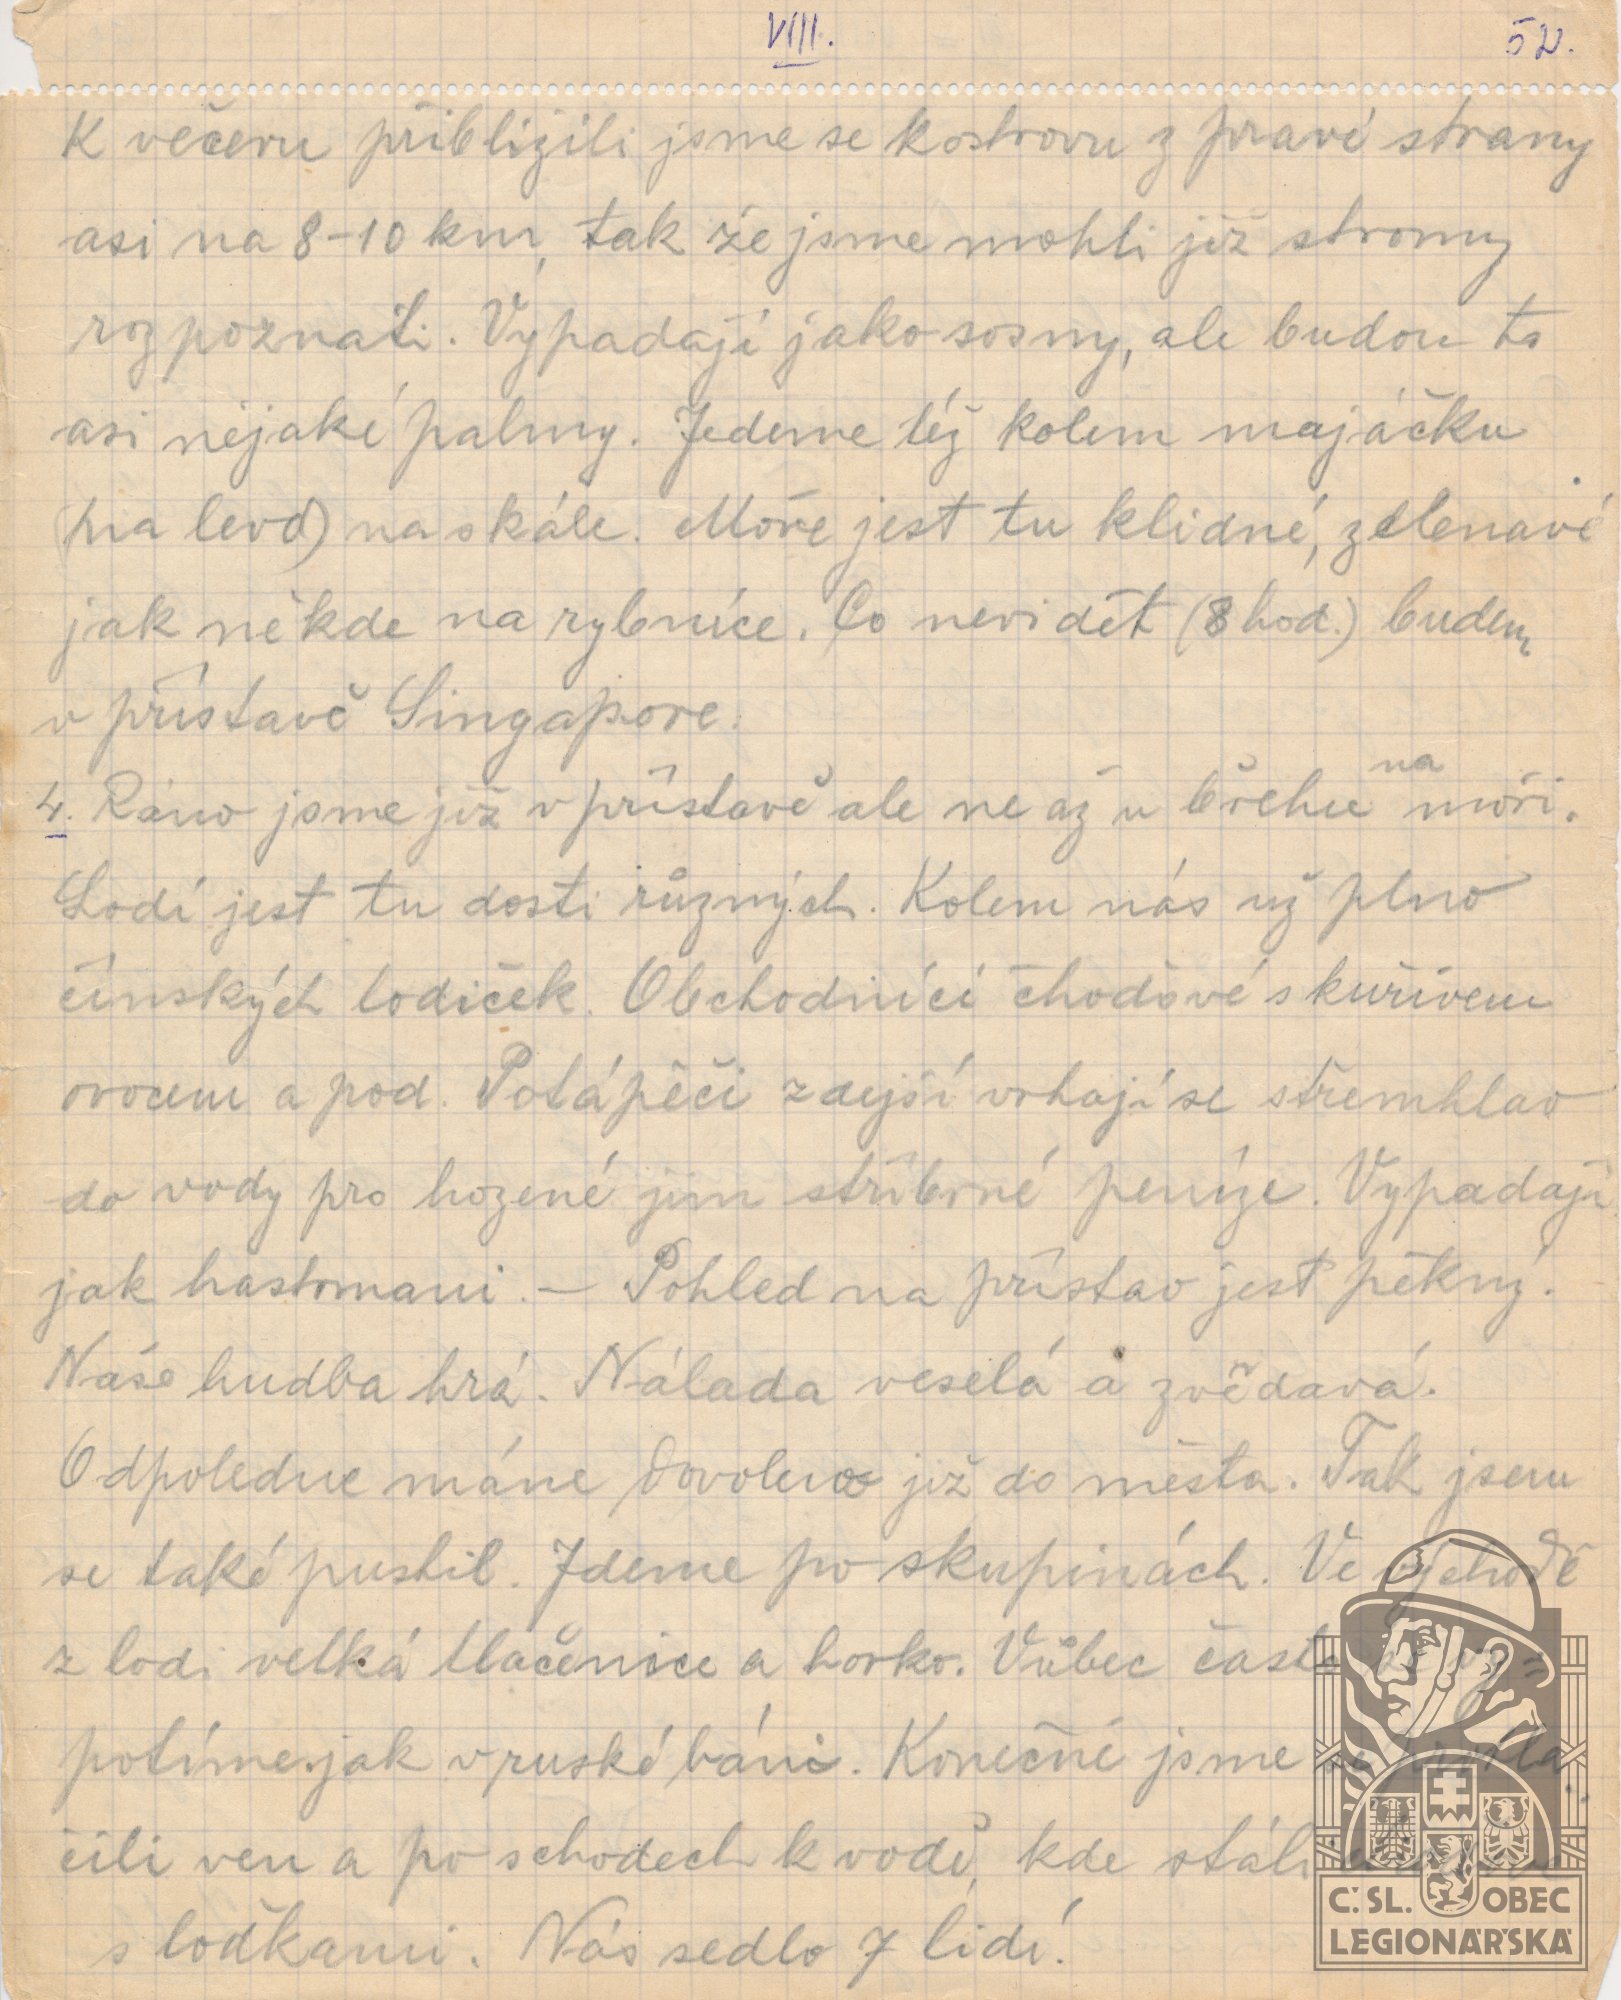 VIII. 52.
K večeru přiblížili jsme se kostrovu z pravé strany
asi na 8-10 km, tak že jsme mohli již stromy
rozpoznati. Vypadají jako sosny, ale budou to
asi nějaké palmy. Jedeme též kolem majáčku
(na levo) na skále. Moře jest tu klidné, zelenavé
jak někde na rybníce. Co nevidět (8 hod.) budem
v přístavě Singapore.
4. Ráno jsme již v přístavě ale ne až u břehu na moři.
Lodí jest tu dosti různých. Kolem nás už plno
čínských lodiček. Obchodníci čhoďové s kuřivem
ovocem a pod. Potápěči zdejší vrhají se střemhlav
do vody pro hozené jim stříbrné peníze. Vypadají
jak hastrmani. — Pohled na přístav jest pěkný.
Naše hudba hrá. Nálada veselá a zvědavá.
Odpoledne máme dovoleno již do města. Tak jsem
se také pustil. Jdeme po skupinách. Ve východě
z lodi velká tlačenice a horko. Vůbec často se
potíme jak v ruské báni. Konečně jsme se
čili ven a po schodech k vodě, kde stáli
s loďkami. Nás sedlo 7 lidí.
Č.SL. OBEC
LEGIONÁŘSKÁ